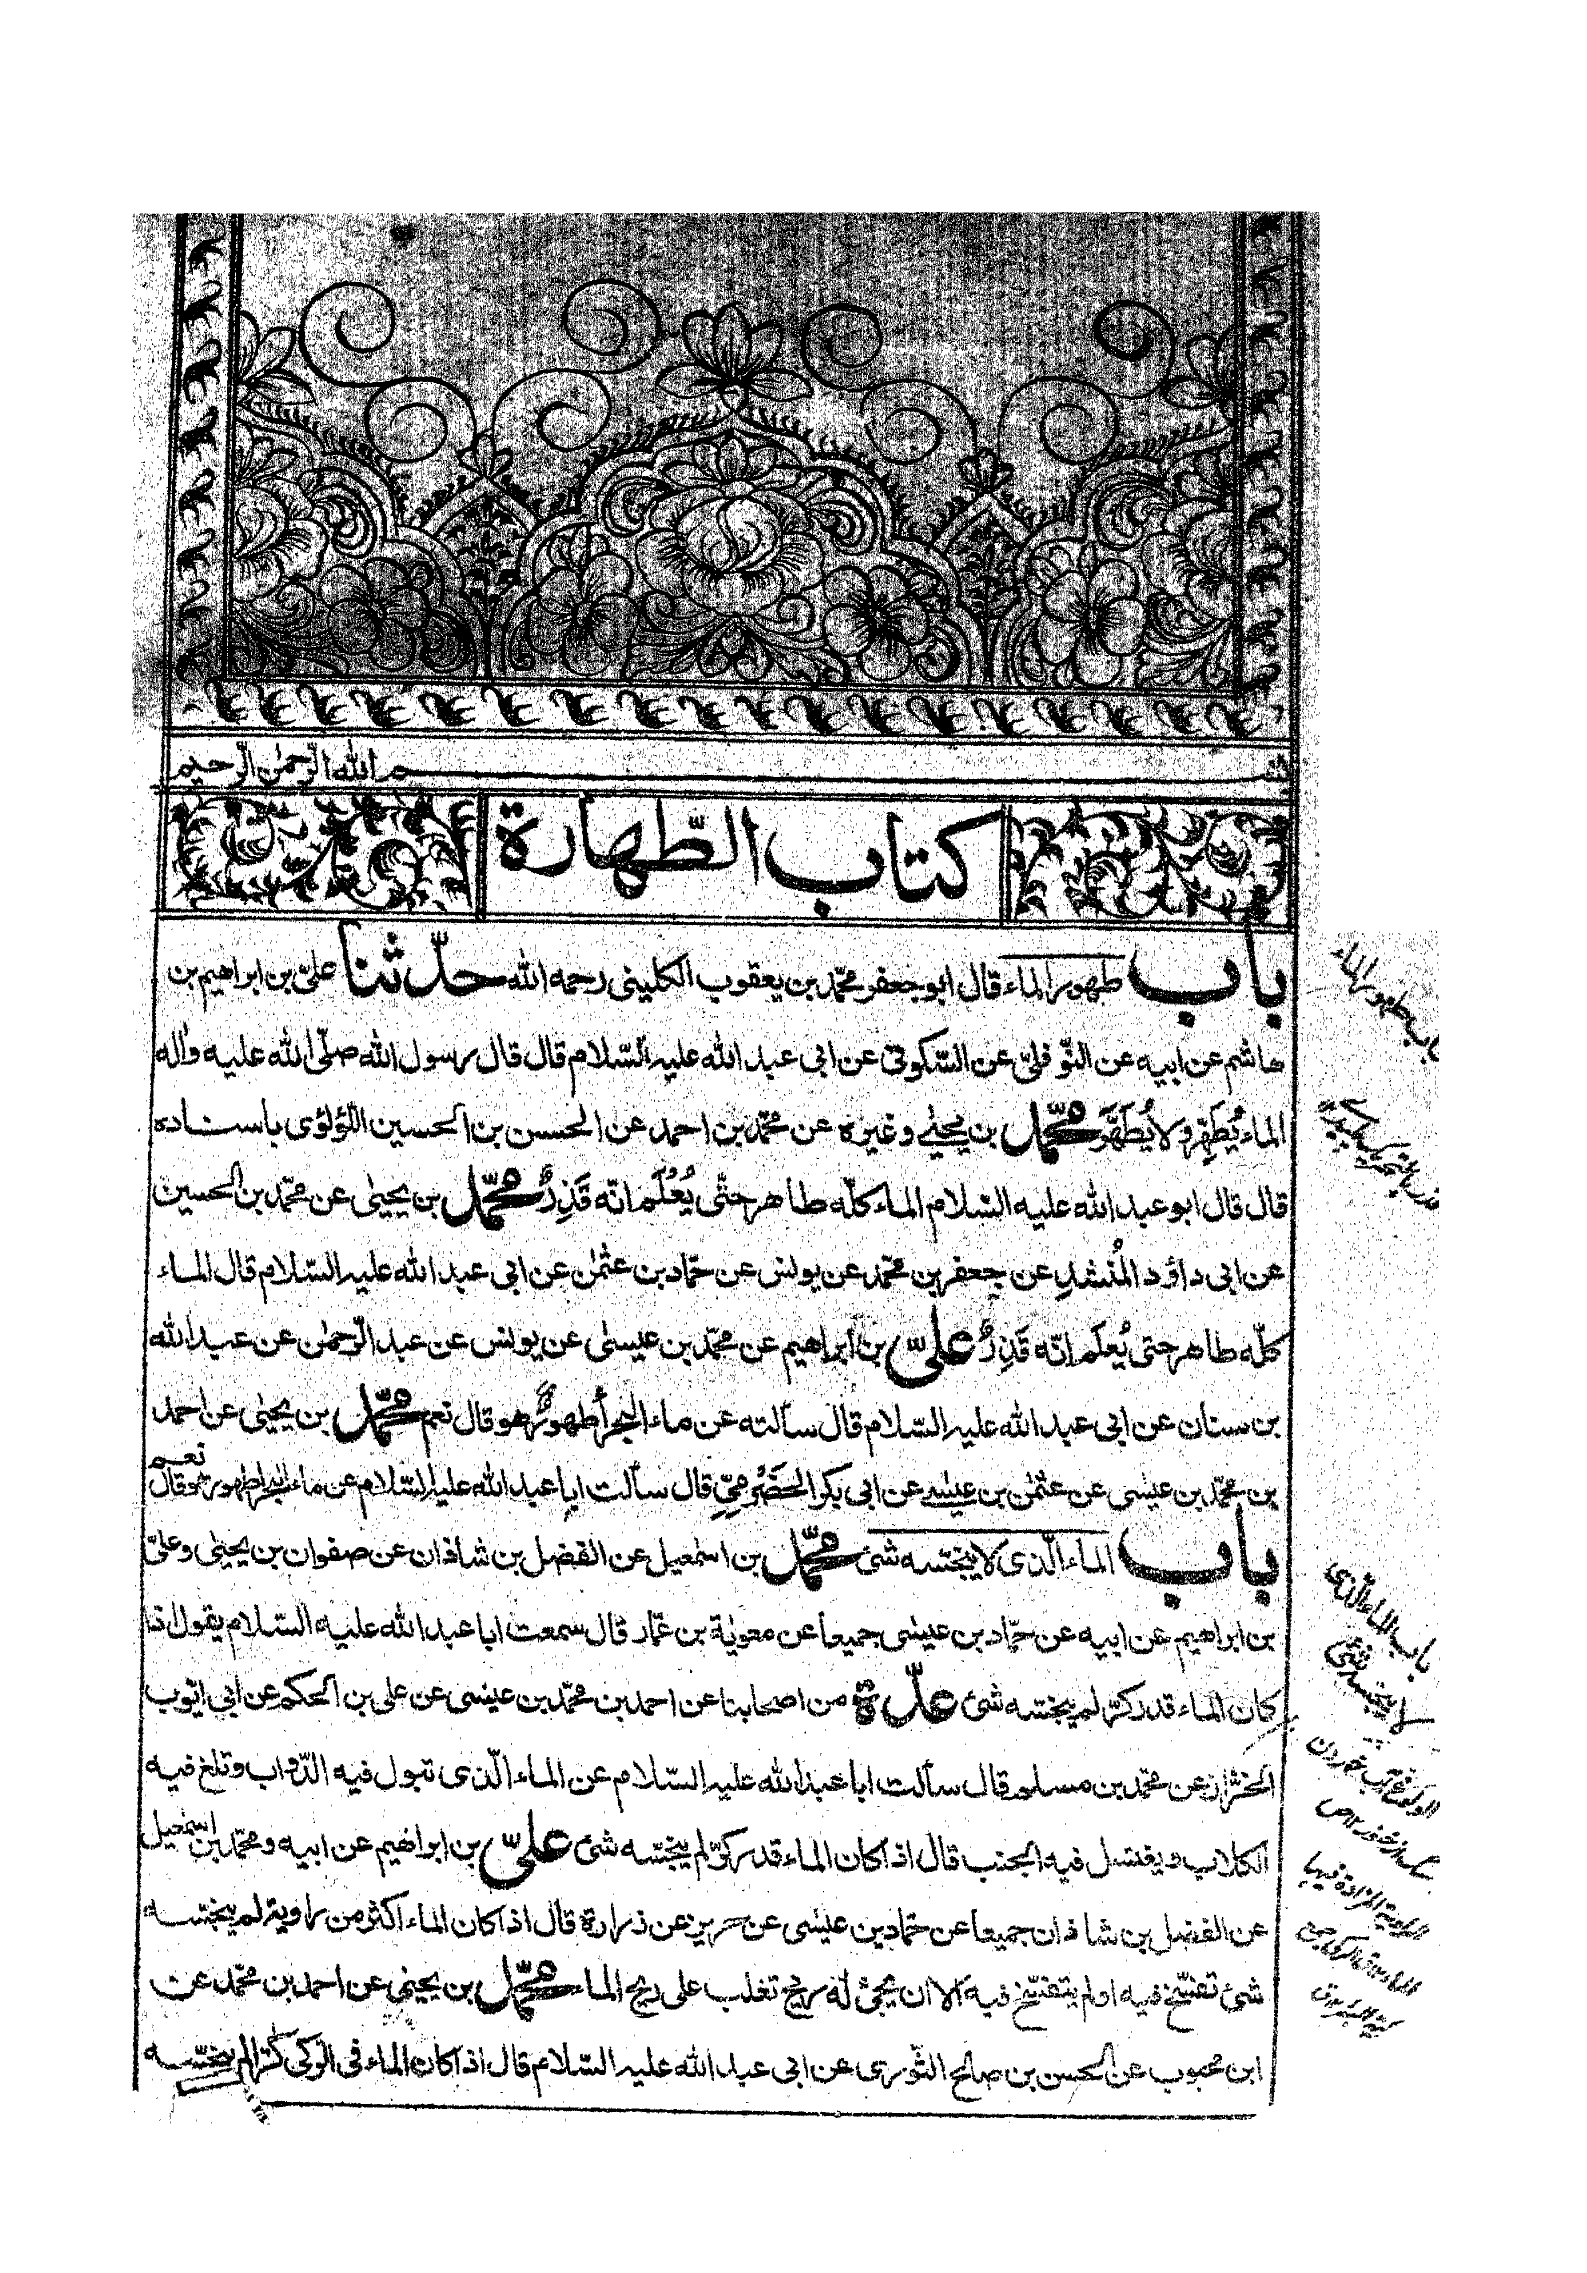 بسم الله الرحمن الرحيم
كتاب الطهارة
باب طهور الماء قال ابو جعفر محمد بن يعقوب الكليني رحمه الله حدثنا علي بن ابراهيم بن
هاشم عن ابيه عن النوفلي عن السكوني عن ابي عبد الله عليه السلام قال قال رسول الله صلى الله عليه واله
الماء يُطَهِّر ولا يُطَهَّر محمد بن يحيى وغيره عن محمد بن احمد عن الحسن بن الحسين اللؤلؤى باسناده
قال قال ابو عبد الله عليه السلام الماء كلّه طاهر حتّى يُعْلَم انّه قَذِرٌ محمد بن يحيى عن محمد بن الحسين
عن ابى داؤد المُنشد عن جعفر بن محمد عن يونس عن حمّاد بن عثمٰن عن ابى عبد الله عليه السلام قال الماء
كلّه طاهر حتى يُعلَم انّه قَذِرٌ علىّ بن ابراهيم عن محمد بن عيسى عن يونس عن عبد الرحمٰن عن عبد الله
بن سنان عن ابى عبد الله عليه السلام قال سألته عن ماء البحر أطهورٌ هو قال نعم محمد بن يحيى عن احمد
بن محمد بن عيسى عن عثمٰن بن عيسى عن ابى بكر الحَضْرَمِىّ قال سألت ابا عبد الله عليه السلام عن ماء البحر اطهور هو قال نعم
باب الماء الّذى لا ينجّسه شئ محمد بن اسمٰعيل عن الفضل بن شاذان عن صفوان بن يحيى وعلىّ
بن ابراهيم عن ابيه عن حمّاد بن عيسى جميعا عن معوية بن عمّار قال سمعت ابا عبد الله عليه السلام يقول اذا
كان الماء قدر كرّ لم ينجّسه شئ عدّة من اصحابنا عن احمد بن محمد بن عيسى عن على بن الحكم عن ابى ايّوب
الخزّاز عن محمد بن مسلم قال سألت ابا عبد الله عليه السلام عن الماء الّذى تبول فيه الدّواب وتلغ فيه
الكلاب ويغتسل فيه الجنب قال اذا كان الماء قدر كرّ لم ينجّسه شئ علىّ بن ابراهيم عن ابيه ومحمد بن اسمٰعيل
عن الفضل بن شاذان جميعا عن حمّاد بن عيسى عن حريز عن زرارة قال اذا كان الماء اكثر من راوية لم ينجّسه
شئ تفسّخ فيه او لم يتفسّخ فيه الّا ان يجئ له ريح تغلب على ريح الماء محمد بن يحيى عن احمد بن محمد عن
ابن محبوب عن الحسن بن صالح الثّورى عن ابى عبد الله عليه السلام قال اذا كان الماء فى الرّكى كرّا لم ينجّسه
باب طهور الماء
باب الماء الذى
لا ينجسه شئ